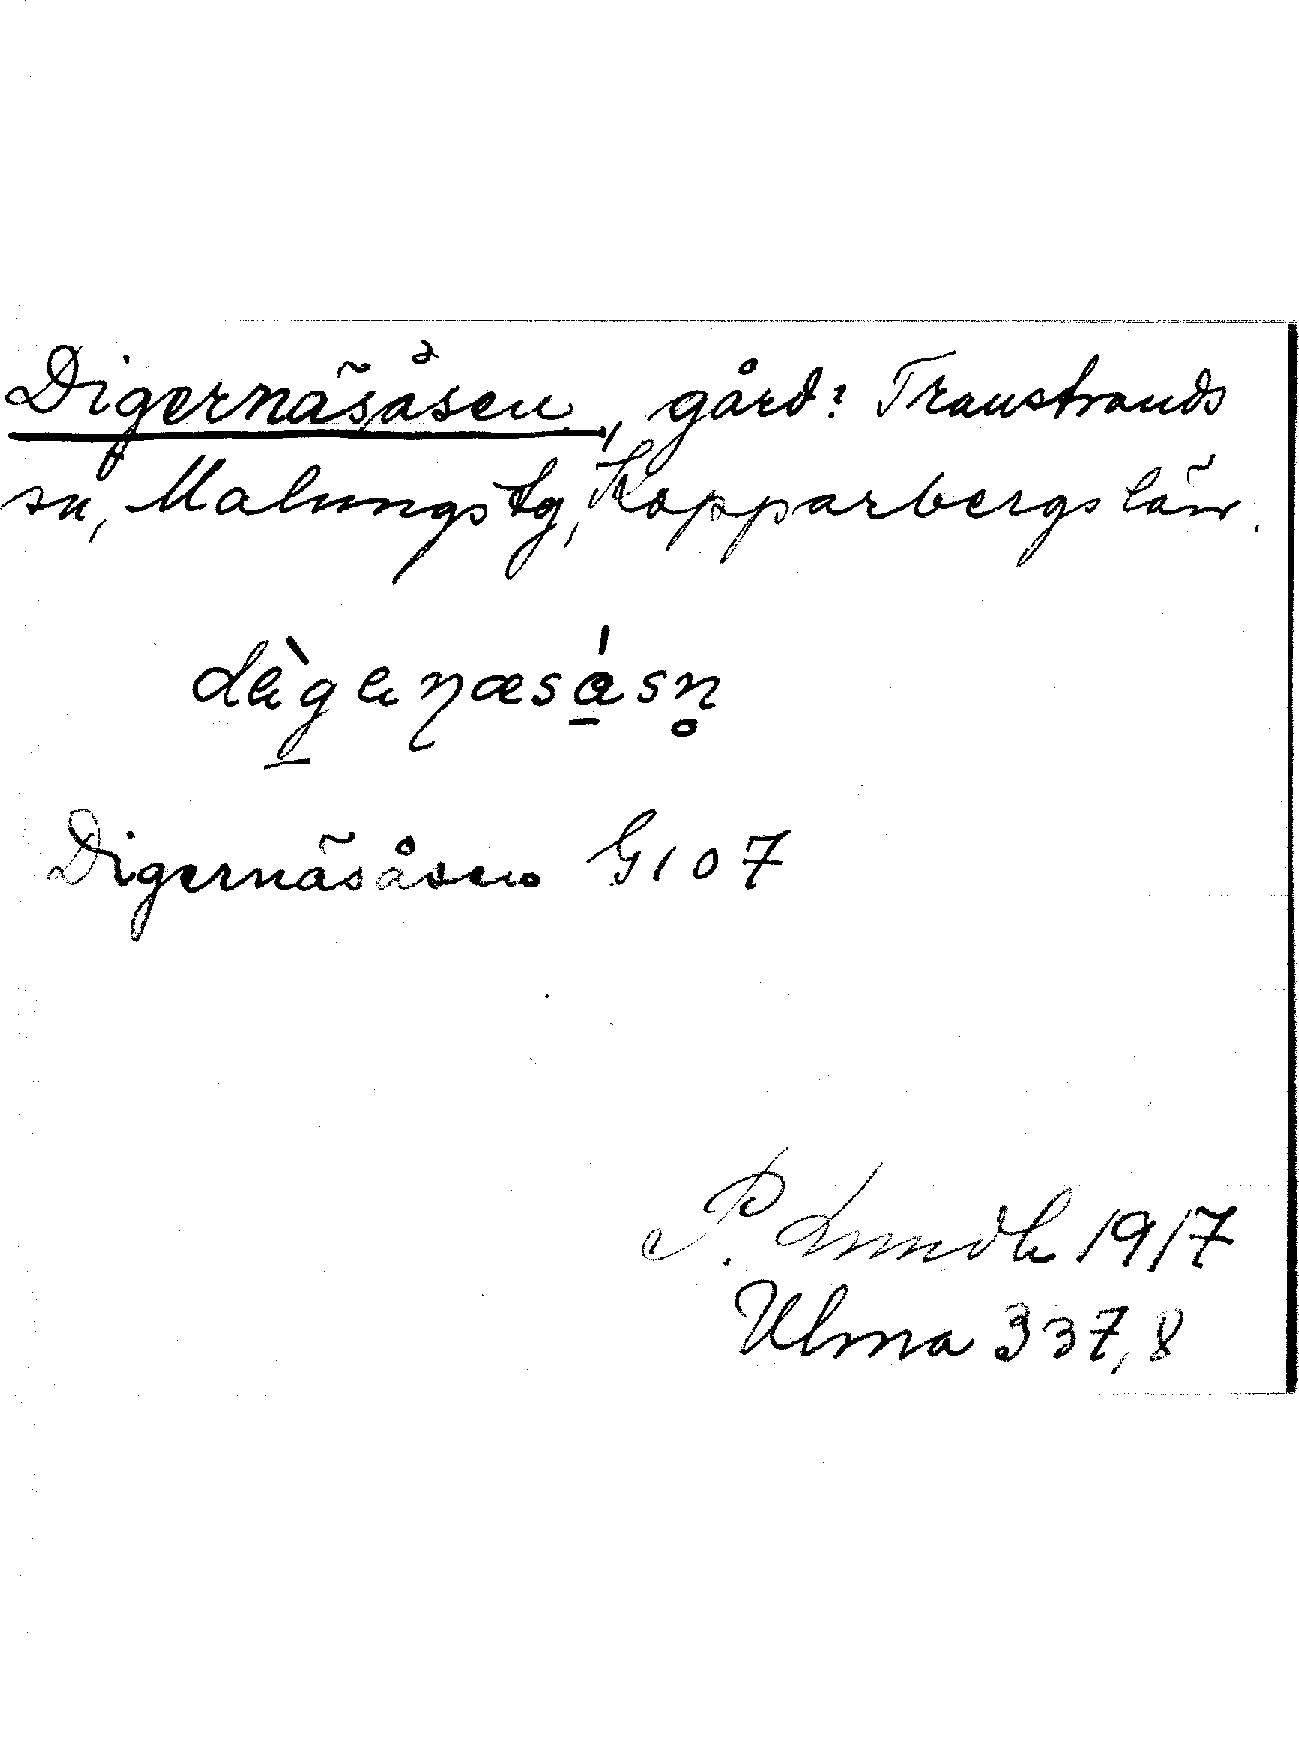 Digernäsåsen, gård: Transtrands
sn, Malungs tg, Kopparbergs län.
Digernäsåsen G107
P. Lundh 1917
Ulma 337,8